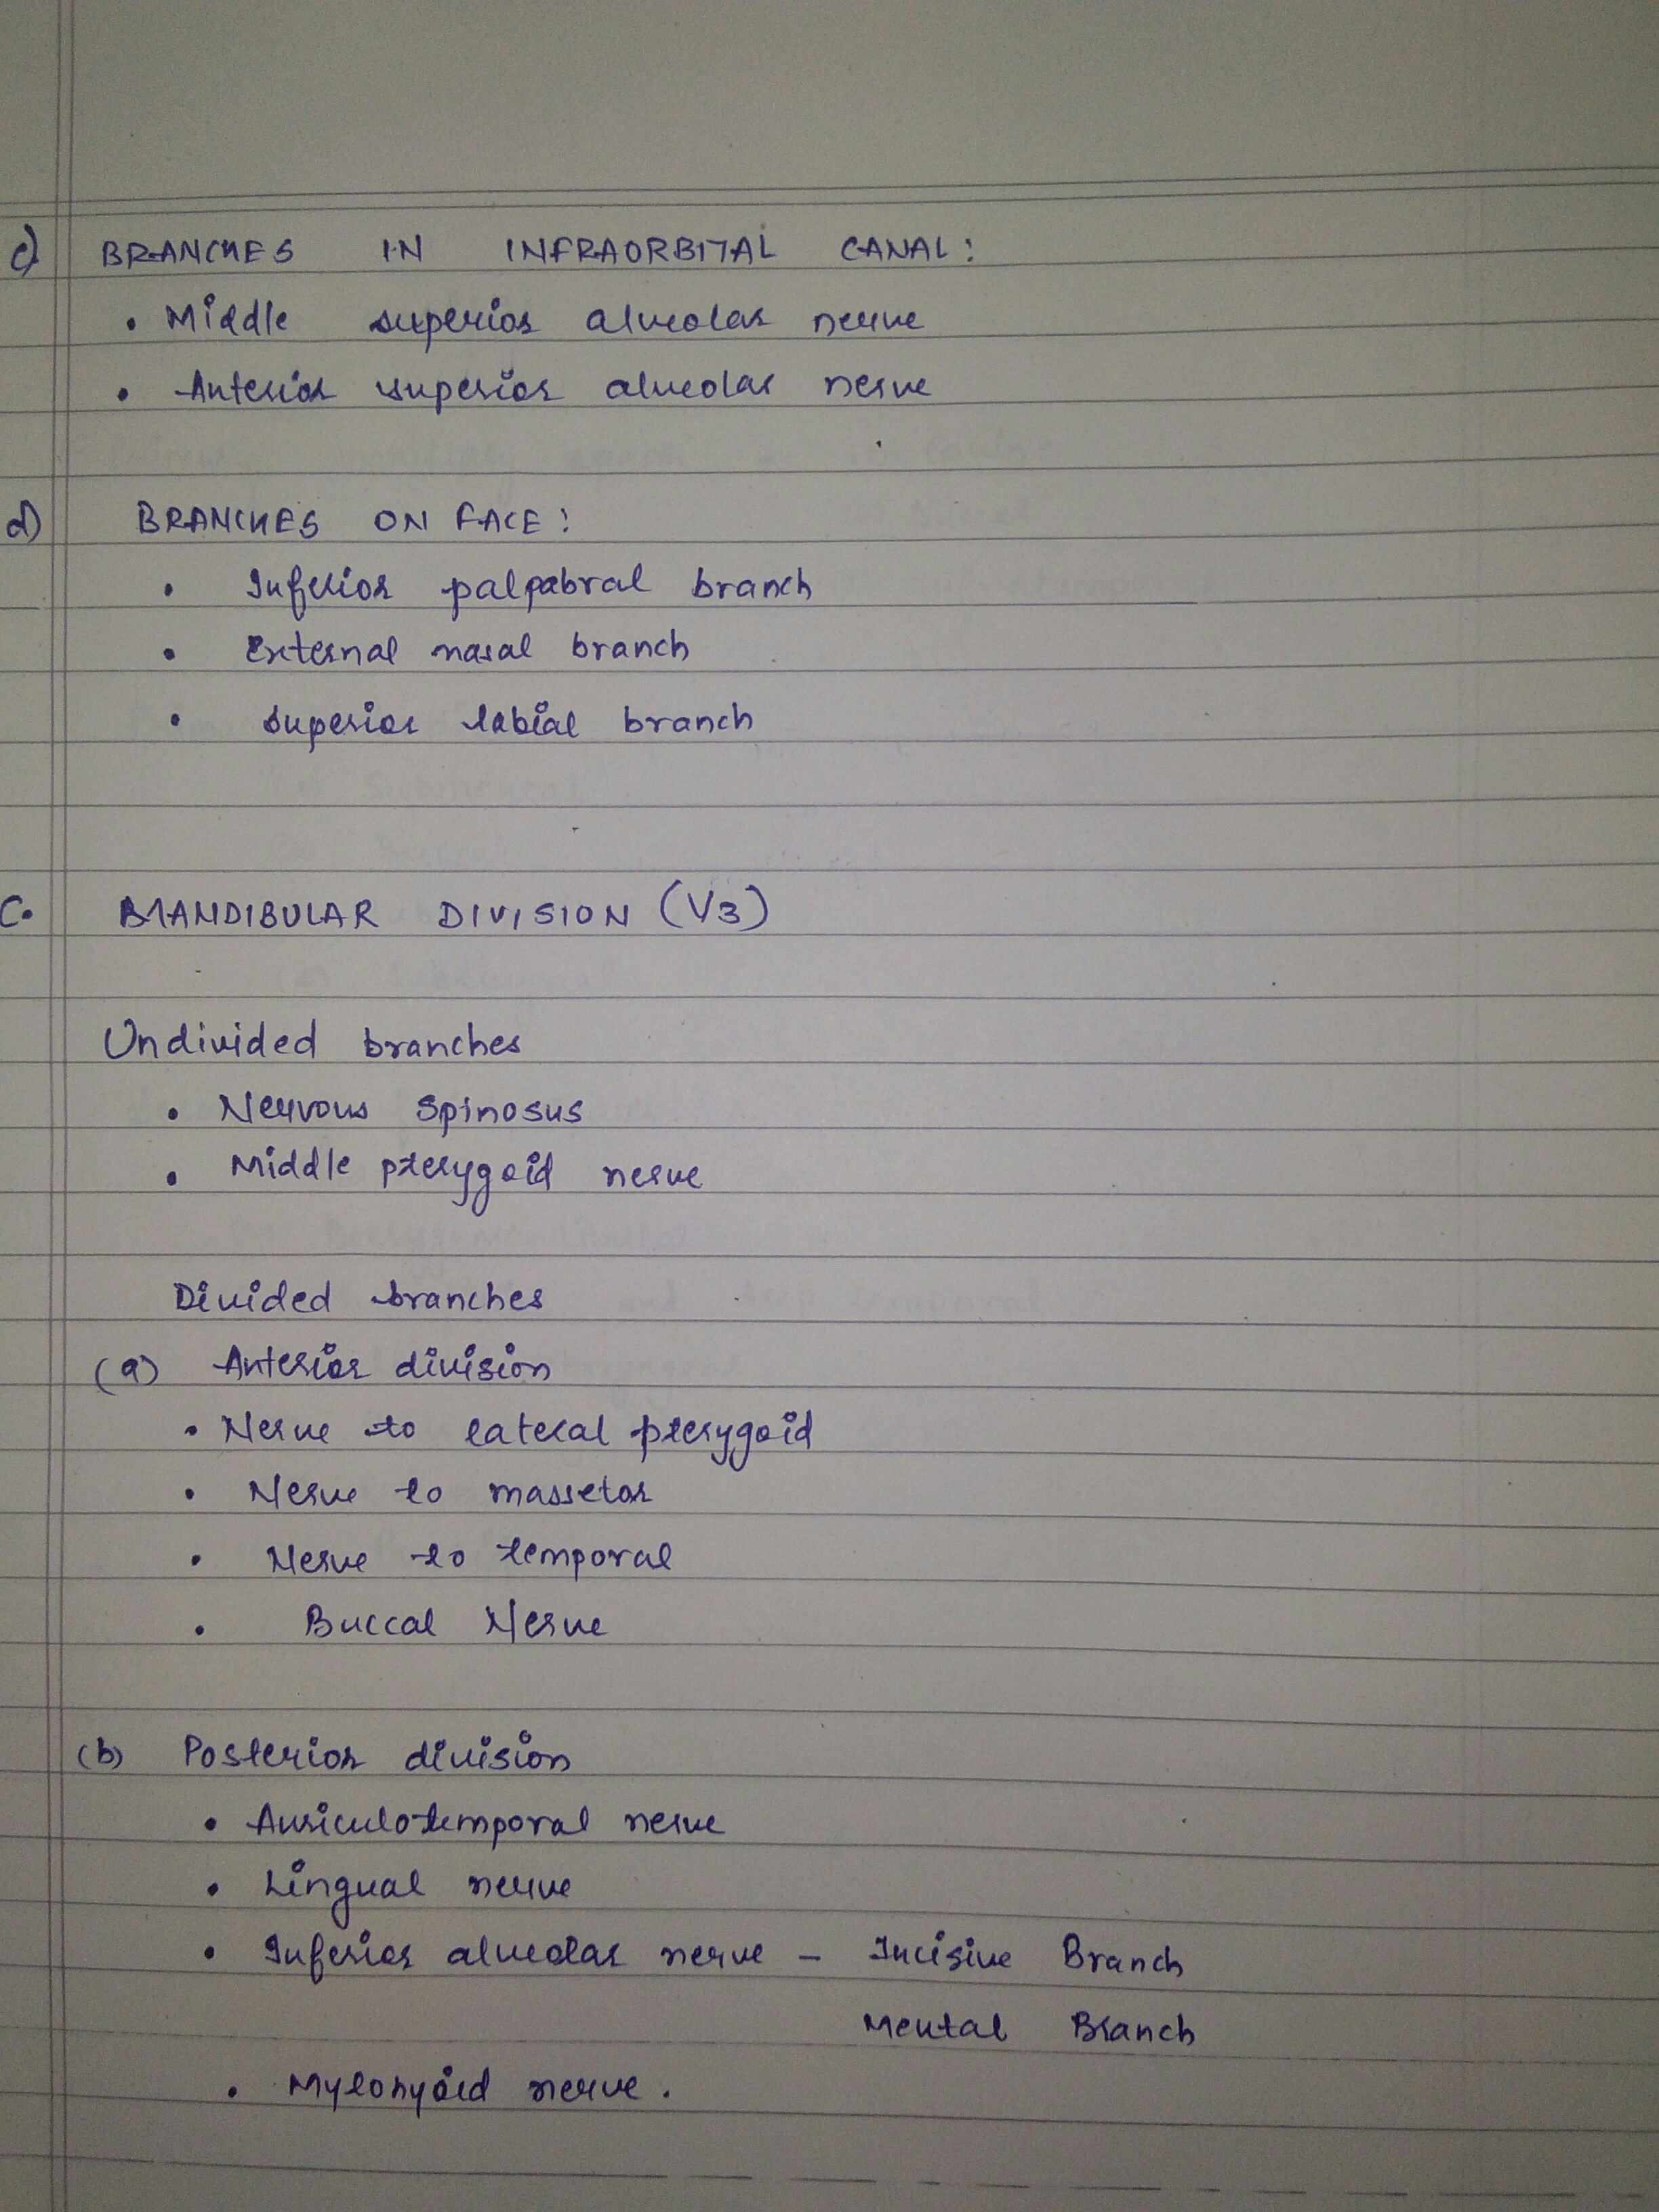 c) BRANCHES IN INFRAORBITAL CANAL:
• Middle superior alveolar nerve
• Anterior superior alveolar nerve
d) BRANCHES ON FACE:
• Inferior palpabral branch
• External nasal branch
• Superior labial branch
C. MANDIBULAR DIVISION (V3)
Undivided branches
• Nervous Spinosus
• Middle pterygoid nerve
Divided branches
(a) Anterior division
• Nerve to lateral pterygoid
• Nerve to massetor
• Nerve to temporal
• Buccal Nerve
(b) Posterior division
• Auriculotemporal nerve
• Lingual nerve
• Inferior alveolar nerve – Incisive Branch
Mental Branch
• Mylohyoid nerve.